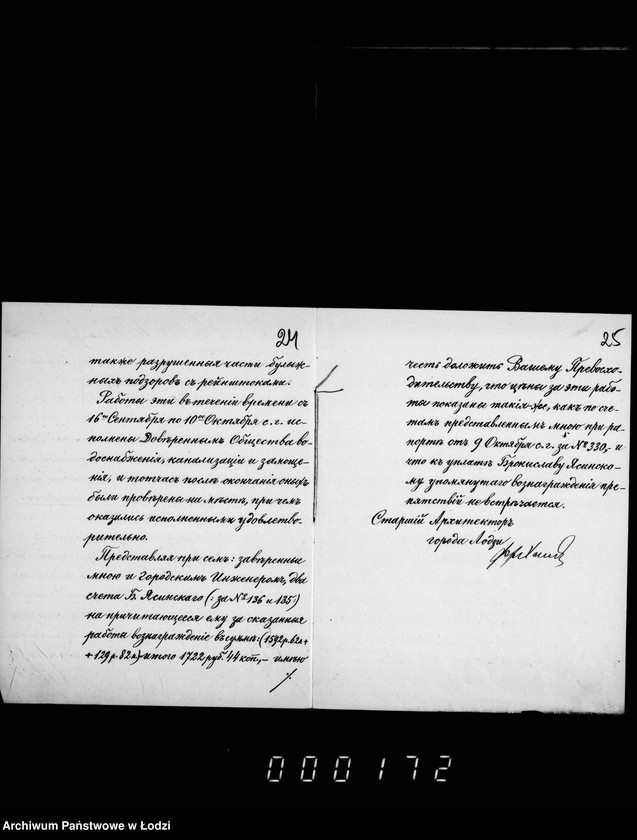 24
также разрушенныя части булыж-
ныхъ подзоровъ съ рейнштоками.
Работы эти въ теченіи времени съ
16го Сентября по 10ое Октября с. г. ис-
полнены Довѣреннымъ Общества во-
доснабженія, канализаціи и замоще-
нія, и тотчасъ послѣ окончанія оныя
были провѣрены на мѣстѣ, при чемъ
оказались исполненными удовлетво-
рительно.
Представляя при семъ: завѣренные
мною и Городскимъ Инженеромъ, два
счета Б. Ясинскаго (: за №136 и 135:)
на причитающееся ему за сказанныя
работы вознагражденіе въ суммѣ: (1592 р. 62 к +
+ 129 р. 82 к) – итого 1722 руб. 44 коп, – имѣю
/.
25
честь доложить Вашему Превосхо-
дительству, что цѣны за эти рабо-
ты показаны такія-же, какъ по сче-
тамъ представленнымъ мною при ра-
портѣ отъ 9 Октября с. г. за № 330, – и
что къ уплатѣ Брониславу Ясинско-
му упомянутаго вознагражденія пре-
пятствій не встрѣчается.
Старшій Архитекторъ
города Лодзи
000172
Archiwum Państwowe w Łodzi